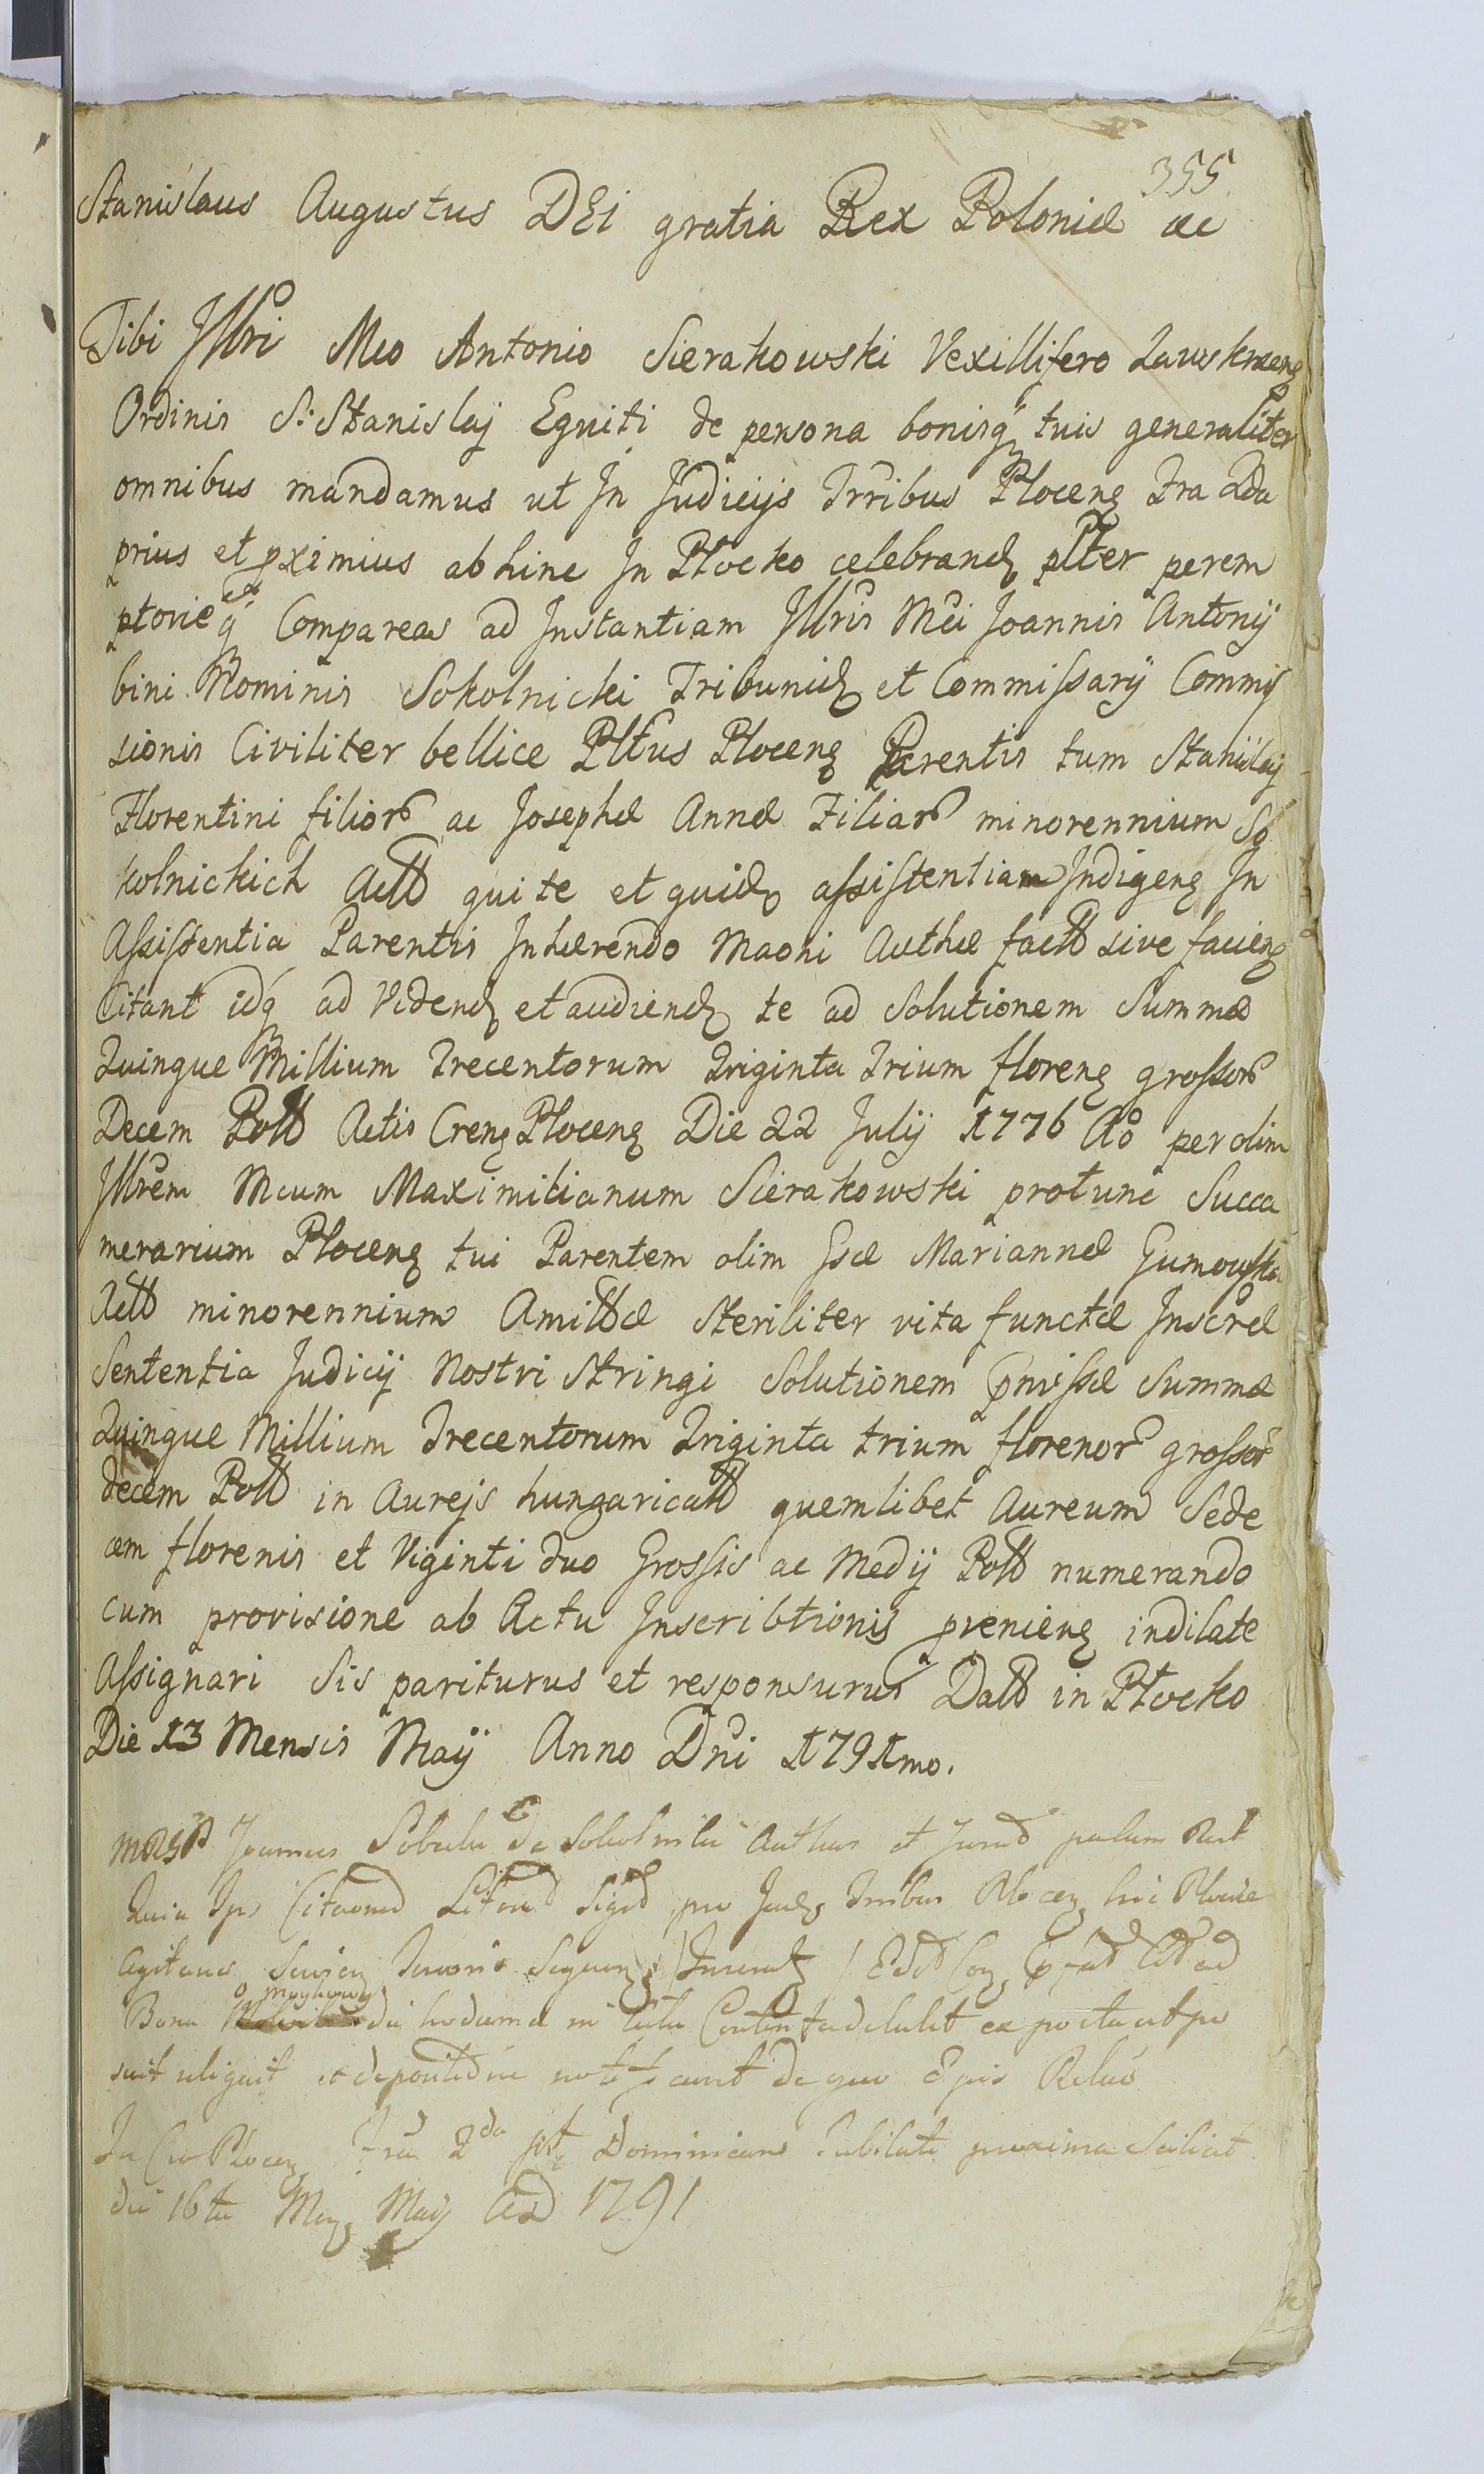 355
Stanislaus Augustus DEI gratia Rex Poloniæ &c
Tibi Illri Mco Antonio Sierakowski Vexillifero Zawskrzeng
Ordinis S. Stanislaj Equiti de persona bonisq tuis generaliter
omnibus mandamus ut In Judicijs Trribus Ploceng Fra 2da
prius et pximius abhinc In Płocko celebrand plter perem
ptorieq Compareas ad Instantiam Illris Mci Joannis Antonij
bini Nominis Sokolnicki Tribunid et Commissarij Commis
sionis Civiliter bellice Pltus Ploceng Parentis tum Stanislaj
Florentini filior ac Josephæ Annæ Filiar minorennium So
kolnickich Actt qui te et quid assistentiam Indigeng In
Assistentia Parentis Inhærendo Maoni Authæ factt sive facieng
Citant idq ad Vidend et audiend te ad Solutionem Summæ
Quinque Millium Trecentorum Triginta Trium floreng grossor
Decem Poltt Actis Creng Ploceng Die 22 Julij 1776 Ao per olim
Illrem Mcum Maximilianum Sierakowski protunc Succa
merarium Ploceng tui Parentem olim Gsæ Mariannæ Gumowska
Actt minorennium Amittæ steriliter vita functæ Inscræ
Sententia Judicij Nostri Stringi Solutionem pmissæ Summæ
Quinque Millium Trecentorum Triginta trium florenor grossor
decem Poltt in Aurejs hungaricatt quemlibet Aureum Sede
cem florenis et Viginti duo Grossis ac Medij Poltt numerando
cum provisione ab Actu Inscribtionis pvenieng indilate
Assignari Sis pariturus et responsurus Datt in Płocko
Die 13 Mensis Maij Anno Dni 1791mo.
Joannes Sobala de Authus et Jurad palam
Quia Ips Citaond Litead Sigd pro Jud Trribus Plocen hic Plociæ
agitans
o Maykowy
Bona die hodierna in
suit reliquit et depositione notificavit de quo Relaō
In Cro Plocen Fra 2da pst Dominicam Jubilate proxima Scilicet
die 16ta Meng Maij And 1791